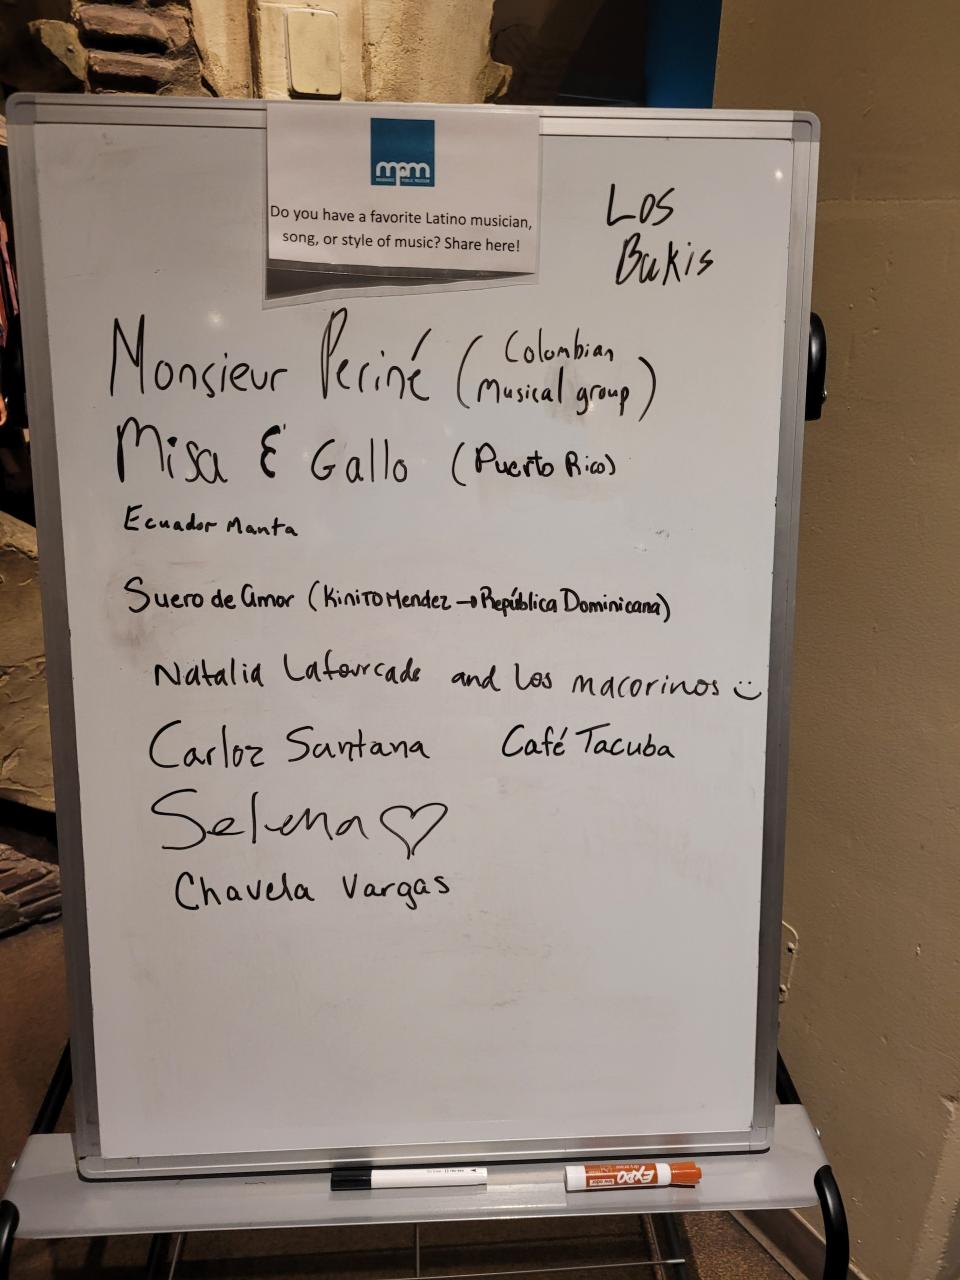 mpm
MILWAUKEE PUBLIC MUSEUM
Do you have a favorite Latino musician,
song, or style of music? Share here!
Los
Bukis
Monsieur Periné (Colombian
Musical group)
Misa & Gallo (Puerto Rico)
Ecuador Manta
Suero de Amor (Kinito Mendez → República Dominicana)
Natalia Lafourcade and Los macorinos
Carloz Santana
Café Tacuba
Selena ♡
Chavela Vargas
EXPO
low odor